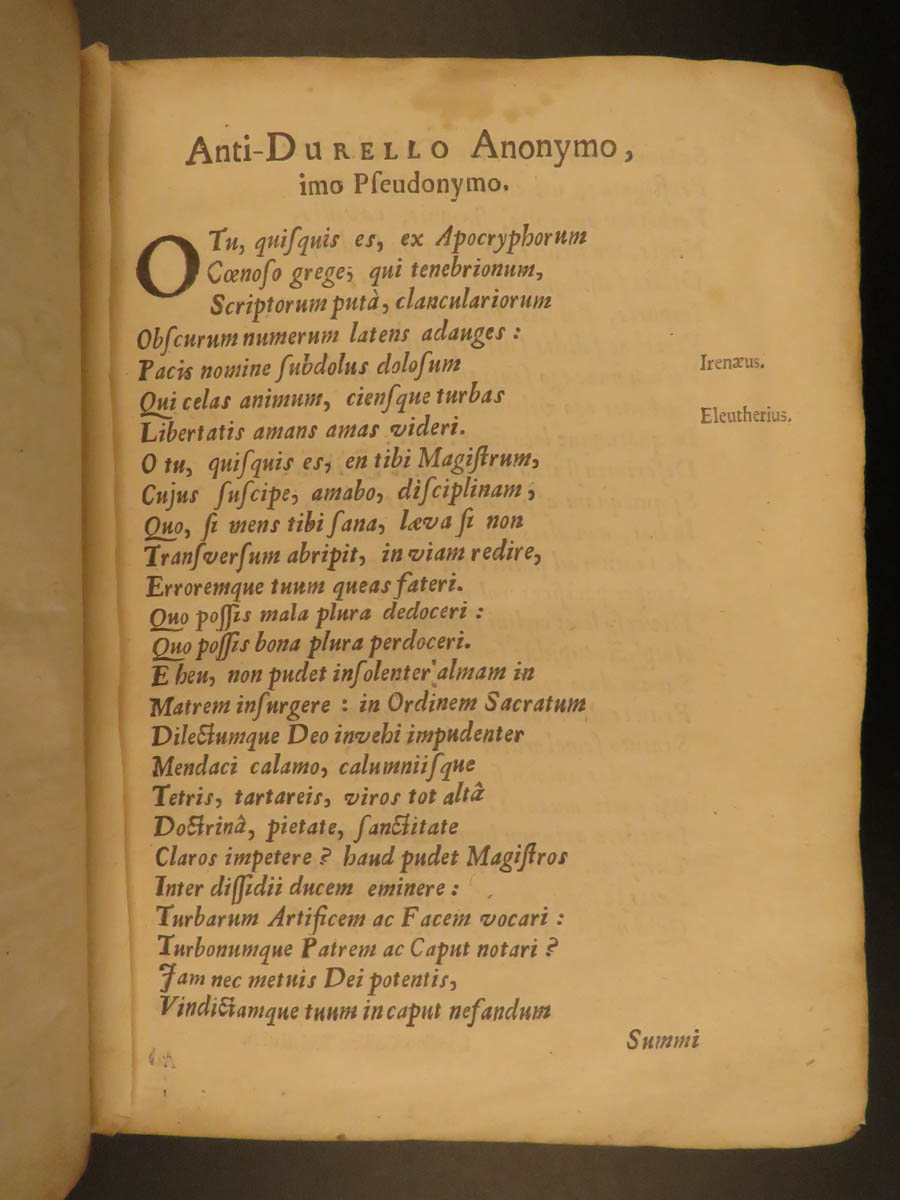 Anti-DURELLO Anonymo,
imo Pſeudonymo.
O Tu, quiſquis es, ex Apocryphorum
Cœnoſo grege; qui tenebrionum,
Scriptorum putà, clanculariorum
Obſcurum numerum latens adauges :
Pacis nomine ſubdolus doloſum
Irenæus.
Qui celas animum, cienſque turbas
Libertatis amans amas videri.
Eleutherius.
O tu, quiſquis es, en tibi Magiſtrum,
Cujus ſuſcipe, amabo, diſciplinam,
Quo, ſi mens tibi ſana, læva ſi non
Tranſverſum abripit, in viam redire,
Erroremque tuum queas fateri.
Quo poſſis mala plura dedoceri :
Quo poſſis bona plura perdoceri.
E heu, non pudet inſolenter almam in
Matrem inſurgere : in Ordinem Sacratum
Dilectumque Deo invehi impudenter
Mendaci calamo, calumniiſque
Tetris, tartareis, viros tot altâ
Doctrinâ, pietate, ſanctitate
Claros impetere ? haud pudet Magiſtros
Inter diſſidii ducem eminere :
Turbarum Artificem ac Facem vocari :
Turbonumque Patrem ac Caput notari ?
Jam nec metuis Dei potentis,
Vindictamque tuum in caput nefandum
Summi